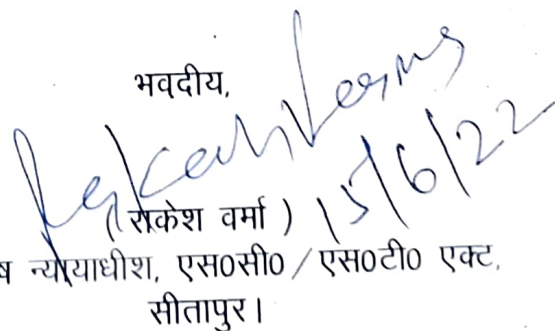 भवदीय,
Rakesh Verma
15/6/22
(राकेश वर्मा )
ष न्यायाधीश, एस0सी0 / एस0टी0 एक्ट,
सीतापुर।